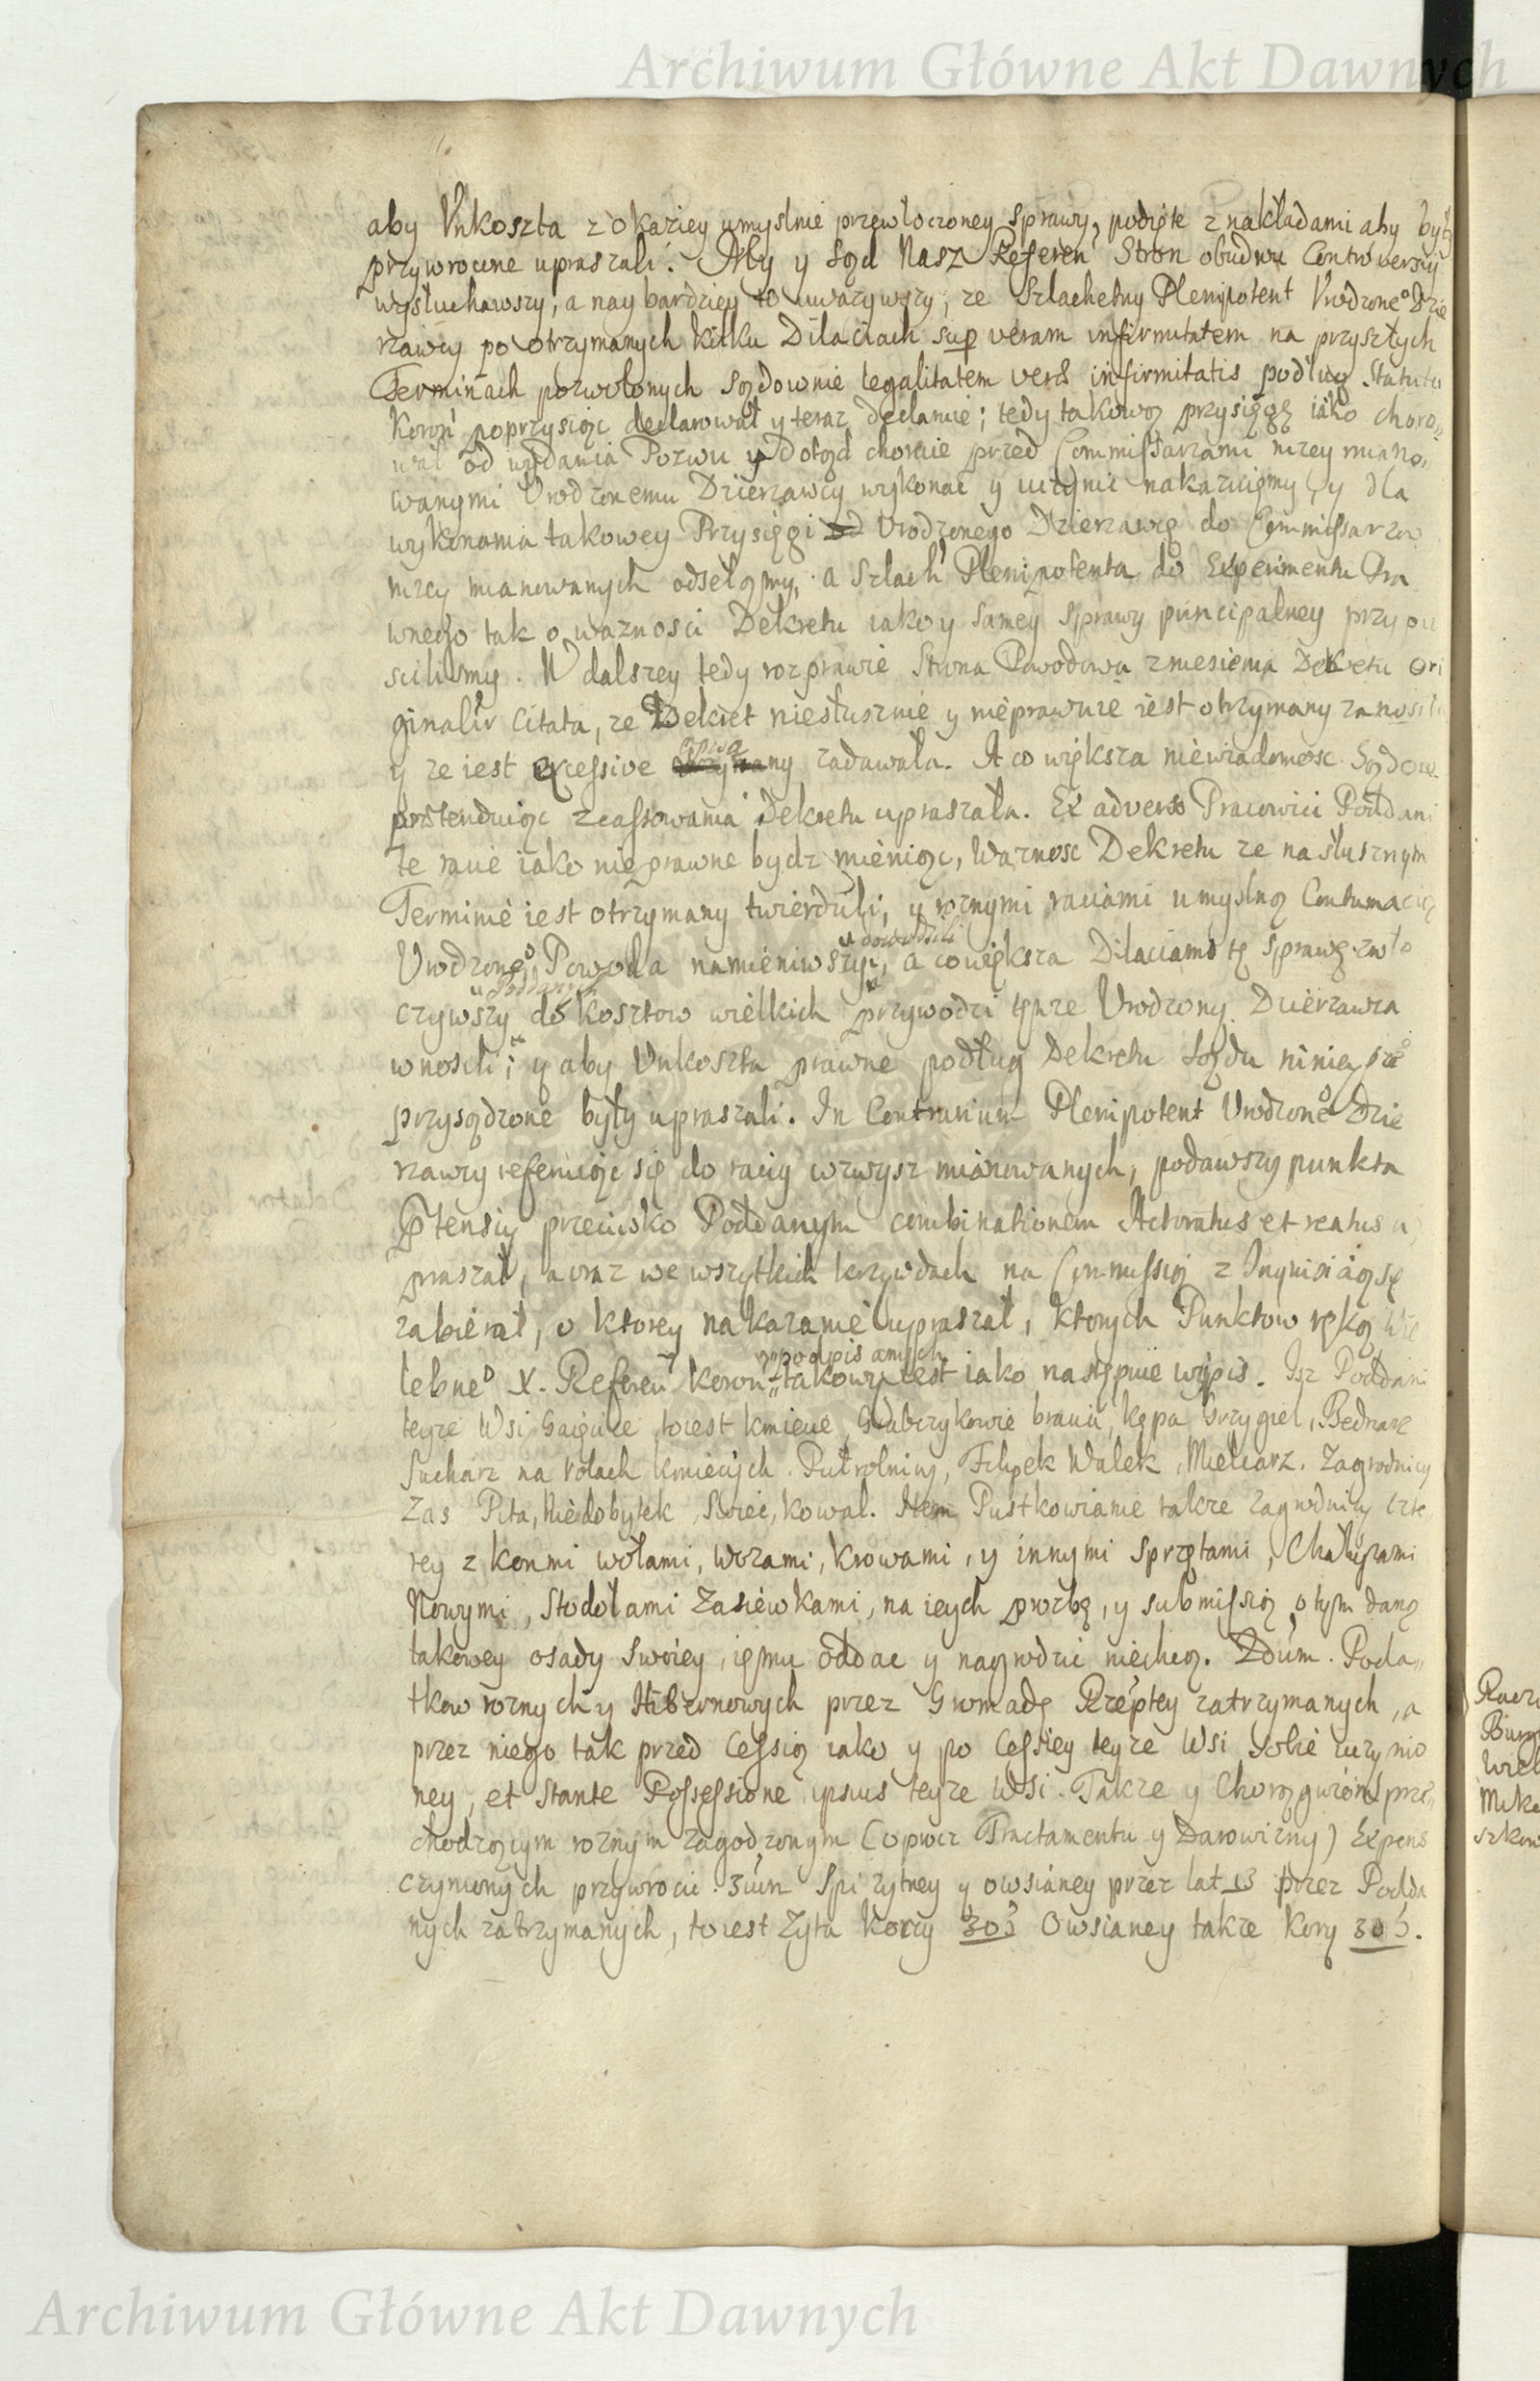 Archiwum Główne Akt Dawnych
aby Unkoszta z okaziey umyslnie przewłoczoney sprawy, podięte z nakładami aby były
przywrocone upraszali. My y Sąd Nasz Referen Stron obudwu Controversiy
wysłuchawszy, a naybardziey to uwazywszy, ze Szlachetny Plenipotent Urodzone° Dzie
rzawcy po otrzymanych kilku Dilaciach sup veram infirmitatem na przyszłych
Terminach pozwolonych Sądownie legalitatem veræ infirmitatis podług Statutu
Koron poprzysiąc declarował y teraz declaruie; tedy takową przysięgę iako choro„
wał od wydania Pozwu y dotąd choruie przed Commissarzami nizey miano„
wanymi Urodzonemu Dzierzawcy wykonac y uczynic nakazuiemy, y dla
wykonania takowey Przysięgi Urodzonego Dzierzawcę do Commissarzow
nizey mianowanych odsełamy, a Szlach Plenipotenta do Experimentu Pra
wnego tak o waznosci Dekretu iako y samey sprawy principalney przypu
scilismy. W dalszey tedy rozprawie Strona Powodowa zniesienia Dekretu ori
ginaliter Citata, ze Dekret niesłusznie y nieprawnie iest otrzymany zanosiła
y ze iest excessive any zadawała. A co większa niewiadomosc Sądow
prætenduiąc zcassowania Dekretu upraszała. Ex adverso Pracowici Poddani
te racie iako nieprawne bydz mieniąc, Waznosc Dekretu ze na słusznym
Terminie iest otrzymany twierdzili, y roznymi raciami umyslną Contumacią
dowodzili
Urodzone° Powoda namieniwszy, a co większa Dilaciami tę sprawę zwło
Poddanych
czywszy do kosztow wielkich przywodzi tenze Urodzony Dzierzawca
wnosili; y aby Unkoszta prawne podług Dekretu Sądu ninieysze°
przysądzone były upraszali. In Contrarium Plenipotent Urodzone° Dzie
rzawcy referuiąc się do raciy wzwysz mianowanych, podawszy punkta
Ptensiy przeciwko Poddanym combinationem Actoratus et reatus u
praszał, a oraz we wszytkich krzywdach na Commissią z Inquisicią się
zabierał, o ktorey nakazanie upraszał, ktorych Punktow ręką Wie
podpisanych
lebne° X. Referen Koron takowy iest iako następuie wypis. Isz Poddani
teyze Wsi toiest kmiecie, Głąbczykowie bracia, Kępa Grzygiel, Bednarz
Sucharz na rolach kmiecych. Pułrolnicy, Filipek Walek, Mielcarz. Zagrodnicy
Zas Pita, Niedobytek, Kowal. Item Pustkowianie takze zagrodnicy czte
rey z konmi wołami, wozami, krowami, y innymi sprzętami, Chałupami
Nowymi, Stodołami Zasiewkami, na ieych prozbę, y submissią o tym daną
takowey osady swoiey, iemu oddac y nagrodzic niechcą. 2dum. Poda„
tkow roznych y Hibernowych przez Gromadę Rzeptey zatrzymanych, a
przez niego tak przed Cessią iako y po Cessiey teyze Wsi sobie uczynio
ney, et stante Possessione ipsius teyze Wsi. Takze y Chorągwiom prze„
chodzącym roznym zagodzonym (oprocz Tractamentu y Darowizny) Expens
czynionych przywrocic. 3um Spi zytney y owsianey przez lat 13 przez Podda
nych zatrzymanych, toiest Zyta Korcy 303 Owsianey takze Korcy 305.
Archiwum Główne Akt Dawnych